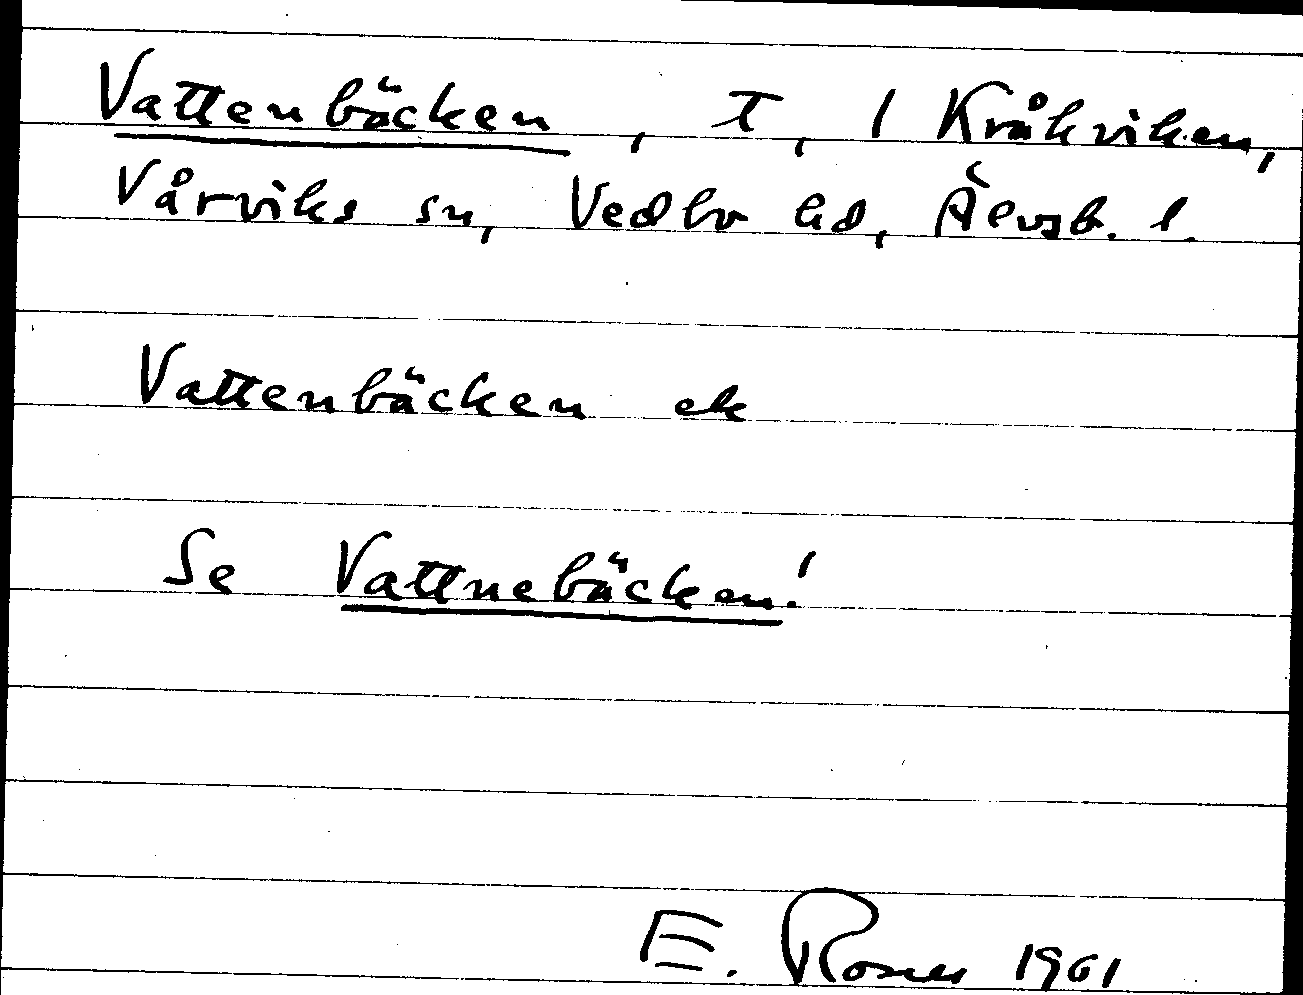 Vattenbäcken, T, 1 Kråkviken,
Vårviks sn, Vedbo hd, Älvsb. l.
Vattenbäcken ek
Se Vattnebäcken!
E. Rosner 1961